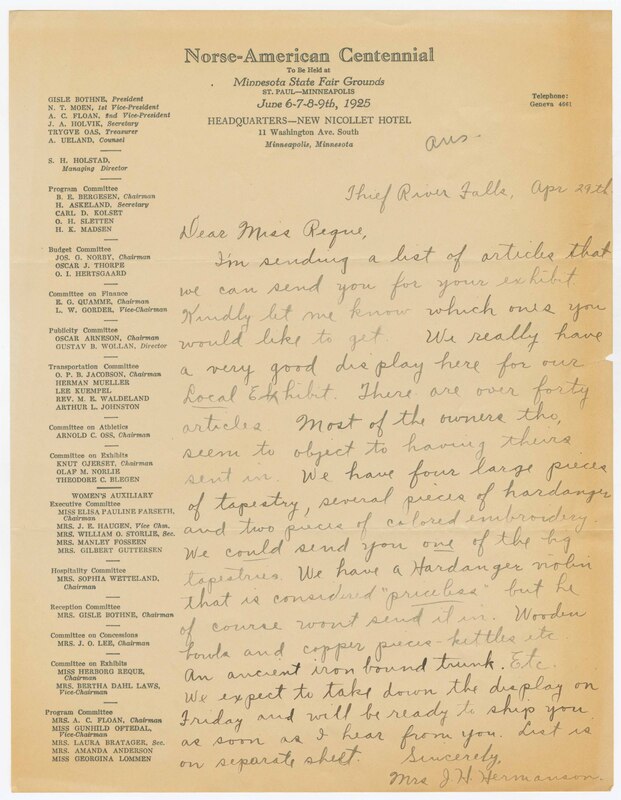 Norse-American Centennial
To Be Held at
Minnesota State Fair Grounds
ST. PAUL—MINNEAPOLIS
June 6-7-8-9th, 1925
HEADQUARTERS—NEW NICOLLET HOTEL
11 Washington Ave. South
Minneapolis, Minnesota
Telephone:
Geneva 4661
GISLE BOTHNE, President
N. T. MOEN, 1st Vice-President
A. C. FLOAN, 2nd Vice-President
J. A. HOLVIK, Secretary
TRYGVE OAS, Treasurer
A. UELAND, Counsel
S. H. HOLSTAD,
Managing Director
Program Committee
B. E. BERGESEN, Chairman
H. ASKELAND, Secretary
CARL D. KOLSET
O. H. SLETTEN
H. K. MADSEN
Budget Committee
JOS. G. NORBY, Chairman
OSCAR J. THORPE
O. I. HERTSGAARD
Committee on Finance
E. G. QUAMME, Chairman
L. W. GORDER, Vice-Chairman
Publicity Committee
OSCAR ARNESON, Chairman
GUSTAV B. WOLLAN, Director
Transportation Committee
O. P. B. JACOBSON, Chairman
HERMAN MUELLER
LEE KUEMPEL
REV. M. E. WALDELAND
ARTHUR L. JOHNSTON
Committee on Athletics
ARNOLD C. OSS, Chairman
Committee on Exhibits
KNUT GJERSET, Chairman
OLAF M. NORLIE
THEODORE C. BLEGEN
WOMEN'S AUXILIARY
Executive Committee
MISS ELISA PAULINE FARSETH,
Chairman
MRS. J. E. HAUGEN, Vice Chm.
MRS. WILLIAM O. STORLIE, Sec.
MRS. MANLEY FOSSEEN
MRS. GILBERT GUTTERSEN
Hospitality Committee
MRS. SOPHIA WETTELAND,
Chairman
Reception Committee
MRS. GISLE BOTHNE, Chairman
Committee on Concessions
MRS. J. O. LEE, Chairman
Committee on Exhibits
MISS HERBORG REQUE,
Chairman
MRS. BERTHA DAHL LAWS,
Vice-Chairman
Program Committee
MRS. A. C. FLOAN, Chairman
MISS GUNHILD OFTEDAL,
Vice-Chairman
MRS. LAURA BRATAGER, Sec.
MRS. AMANDA ANDERSON
MISS GEORGINA LOMMEN
ans
Thief River Falls, Apr 29th
Dear Miss Reque,
I'm sending a list of articles that
we can send you for your exhibit.
Kindly let me know which ones you
would like to get. We really have
a very good display here for our
Local Exhibit. There are over forty
articles. Most of the owners tho,
seem to object to having theirs
sent in. We have four large pieces
of tapestry, several pieces of hardanger
and two pieces of colored embroidery.
We could send you one of the big
tapestries. We have a Hardanger violin
that is considered "priceless" but he
of course wont send it in. Wooden
bowls and copper pieces - kettles etc
An ancient iron bound trunk. Etc.
We expect to take down the display on
Friday and will be ready to ship you
as soon as I hear from you. List is
on separate sheet. Sincerely,
Mrs J. H. Hermanson.